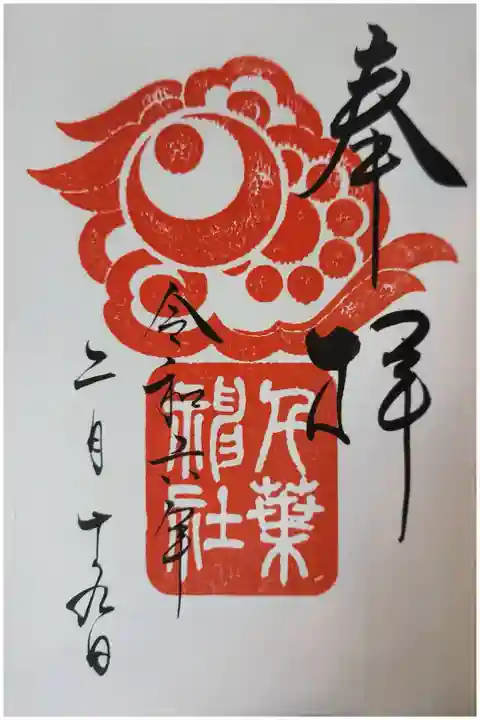 奉拝
千葉
神社
令和六年
二月十九日